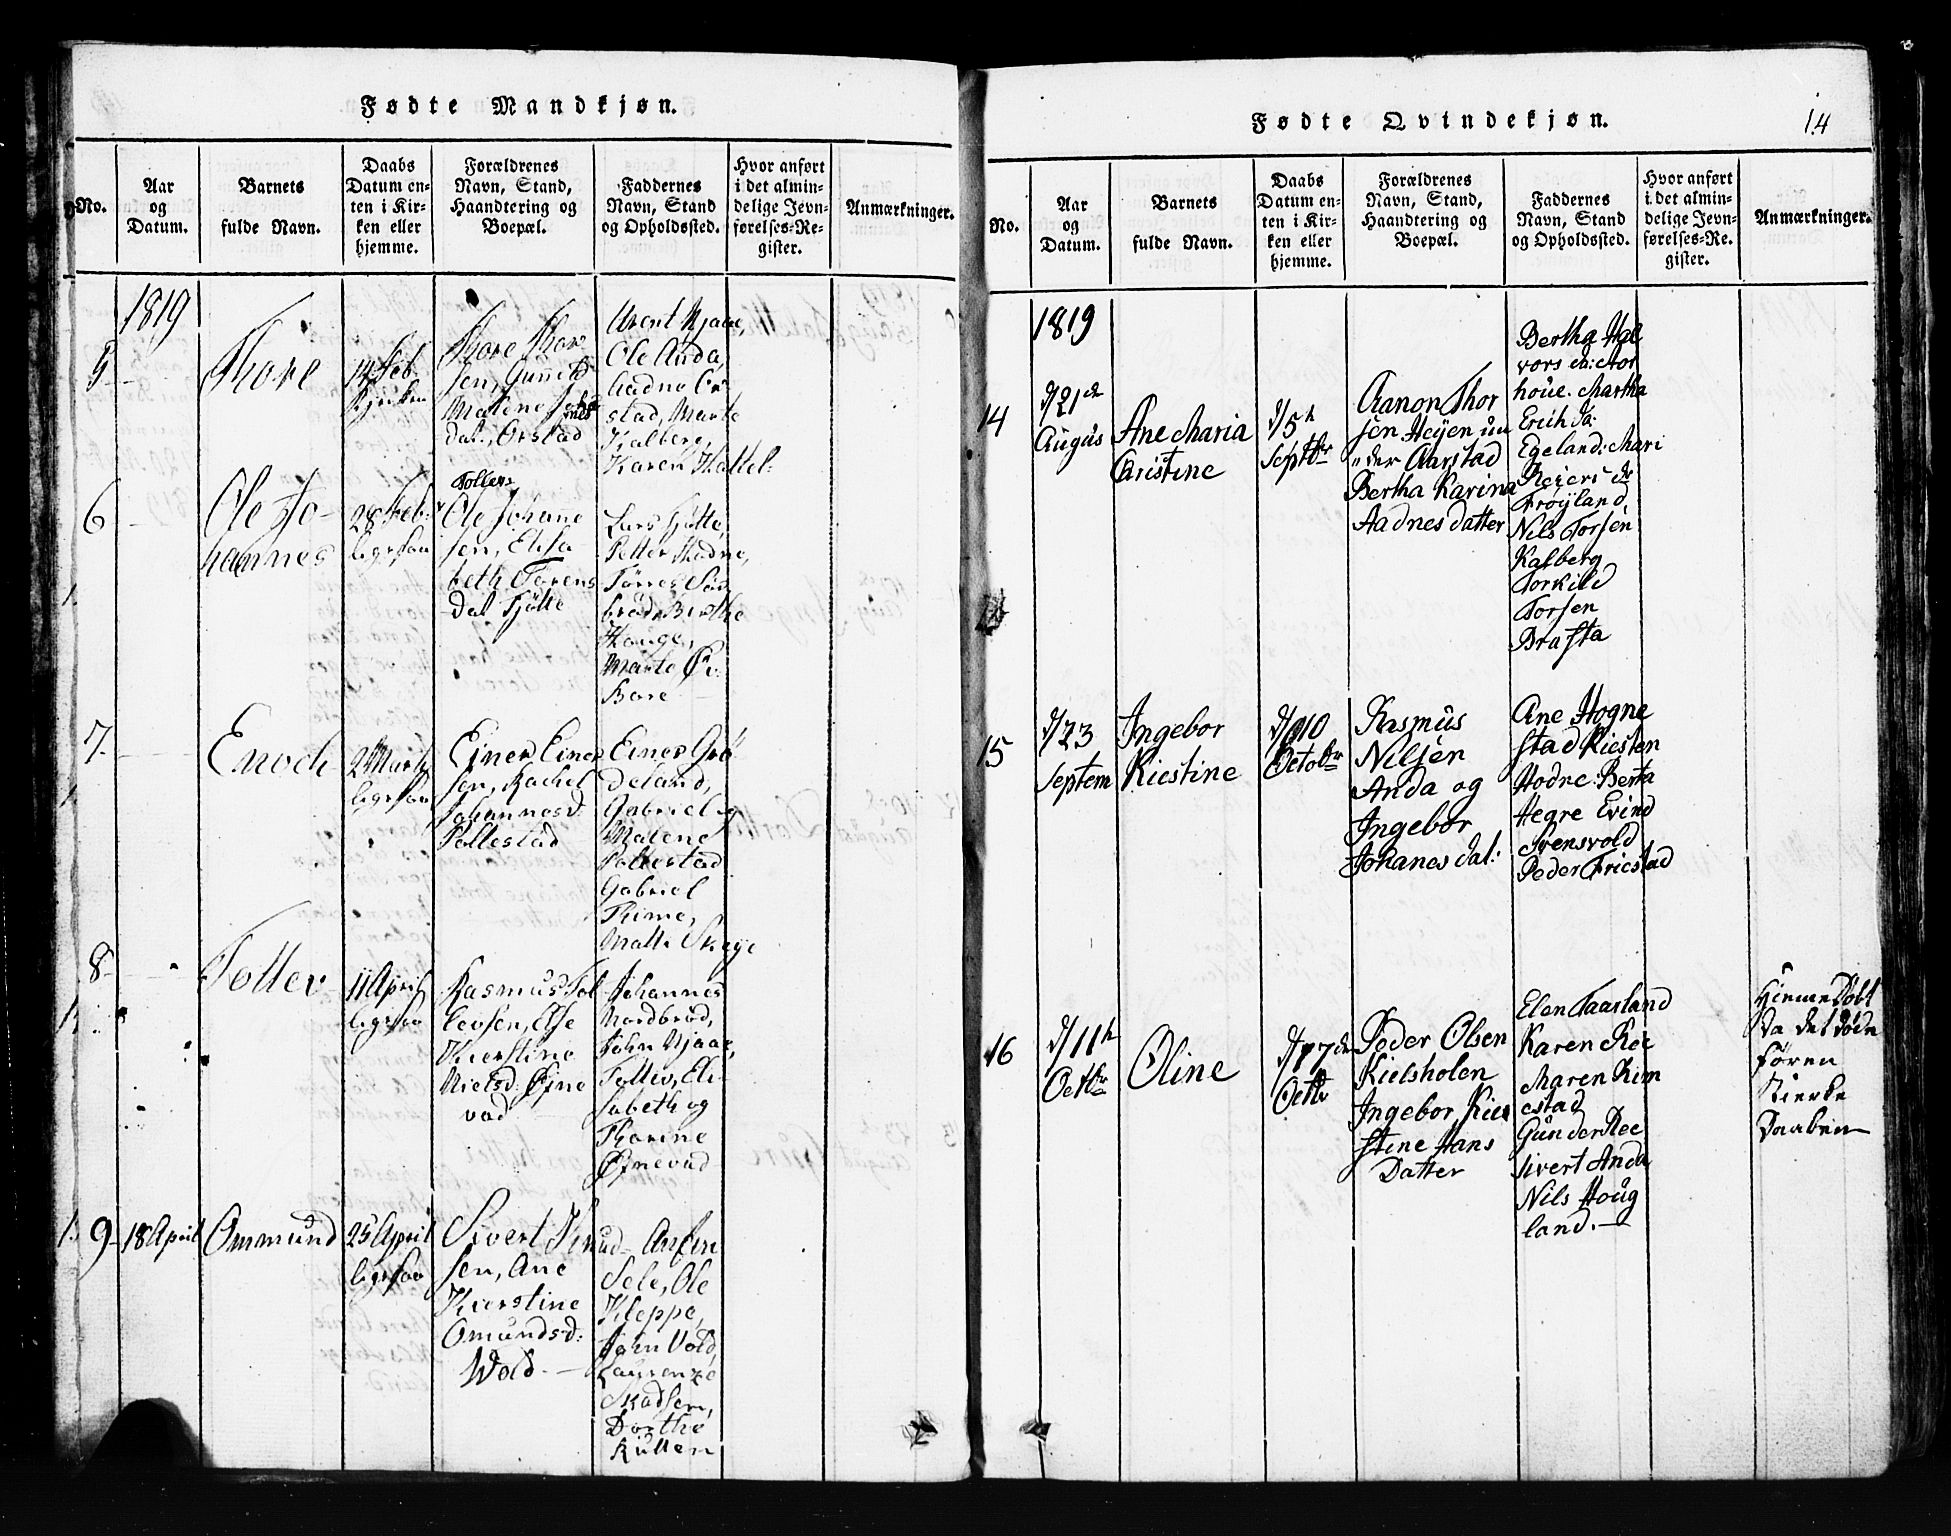 Fødte Mandkjøn.
No.
Aar
og
Datum.
Barnets
fulde Navn.
Daabs
Datum en-
ten i Kir-
ken eller
hjemme.
Forældrenes
Navn, Stand,
Haandtering og
Boepæl.
Faddernes
Navn, Stand
og Opholdssted.
Hvor anført
i det almin-
delige Jevn-
førelses-Re-
gister.
Anmærkninger.
1819
5
Thore
14 Feb.
Kjirken
Thore Thor
sen, Gunnild
Malene
dat., Orstad
Arent Njaae,
Ole Anda,
stad, Marte
Kalberg,
Karen Hattel:
6
Ole Jo-
hannes
28 Feb.
ligesaa
Toller
Ole Johanne
sen, Elisa
beth Torens
Dat Tjötte
Lars Tjötte,
Petter Hodne,
Törres Sör
bröd, Berthe
Houge,
Marte
Bore
7.
Enoch
2 Marti
ligesaa
Einer Einer
sen, Rachel
Johannesd:
Pollestad
Einer Grö
deland,
Gabriel og
Malene
Pollestad
Gabriel
Thime,
Malli Skeye
8
Tollev
11 April
ligesaa
Rasmus Tol
levsen, Else
Kierstine
Nielsd: Øfne
vad
Johannes
Nordbröd,
John Njaae,
Tollev, Eli
sabeth og
Thorine
Øfnevad
9
18 April
Ommund
25 April
ligesaa
Sivert Knud
sen, Ane
Kierstine
Omundsd:
Wold.
Anfin
Sele, Ole
Kleppe,
John Vold,
Laurenze
Skadsem,
Dorthe
Kütlen
Fødte Qvindekjøn.
14
No.
Aar
og
Datum.
Barnets
fulde Navn.
Daabs
Datum en-
ten i Kir-
ken eller
hjemme.
Forældrenes
Navn, Stand,
Haandtering og
Boepæl.
Faddernes
Navn, Stand
og Opholdssted.
Hvor anført
i det almin-
delige Jevn-
førelses-Re-
gister.
Anmærkninger.
1819
14
d/21de
Augüs
Ane Maria
Cristine
d/5te
Septbr
Aanon Thor
sen Heyen un
"der Aarstad
Bertha Karina
Aadnes datter
Bertha Hal
vors da: Aar
houe. Martha
Erich da:
Egeland: Mari
Reiers dr
Frøyland,
Nils Torsen
Kalberg
Torkild
Torsen
Brasta
15
d/23
Septem
Ingebor
Kiestine
d/10
Octobr
Rasmüs
Nilsen
Anda og
Ingebor
Johanes dat:
Ane Hogne
stad Kiesten
Hodne: Berta
Hegre Evind
Svensvold
Peder Friestad
16
d/11te
Octbr
Oline
d/17de
Octb
Peder Olsen
Kielsholen
Ingebor Kier
stine Hans
Datter
Elen Taarland
Karen Ree
Maren Kim
estad
Günder Ree
Sivert Anda
Nils Houg
land.
Hiemmedøbt
Da det døde
føren
Kierke
Daaben